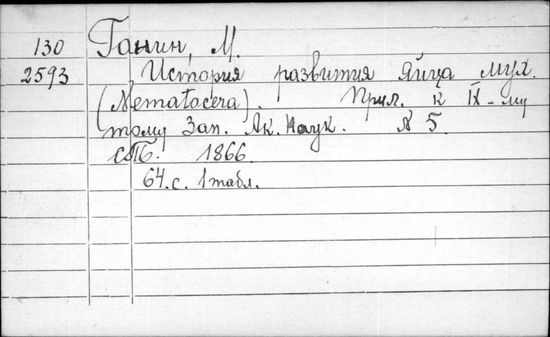 130 Ганин, М.
2593 История развития яйца мух.
(Nematocera). Прил. к IX-му
тому Зап. Ак. Наук. № 5.
СПБ. 1866.
64.с. 1 табл.